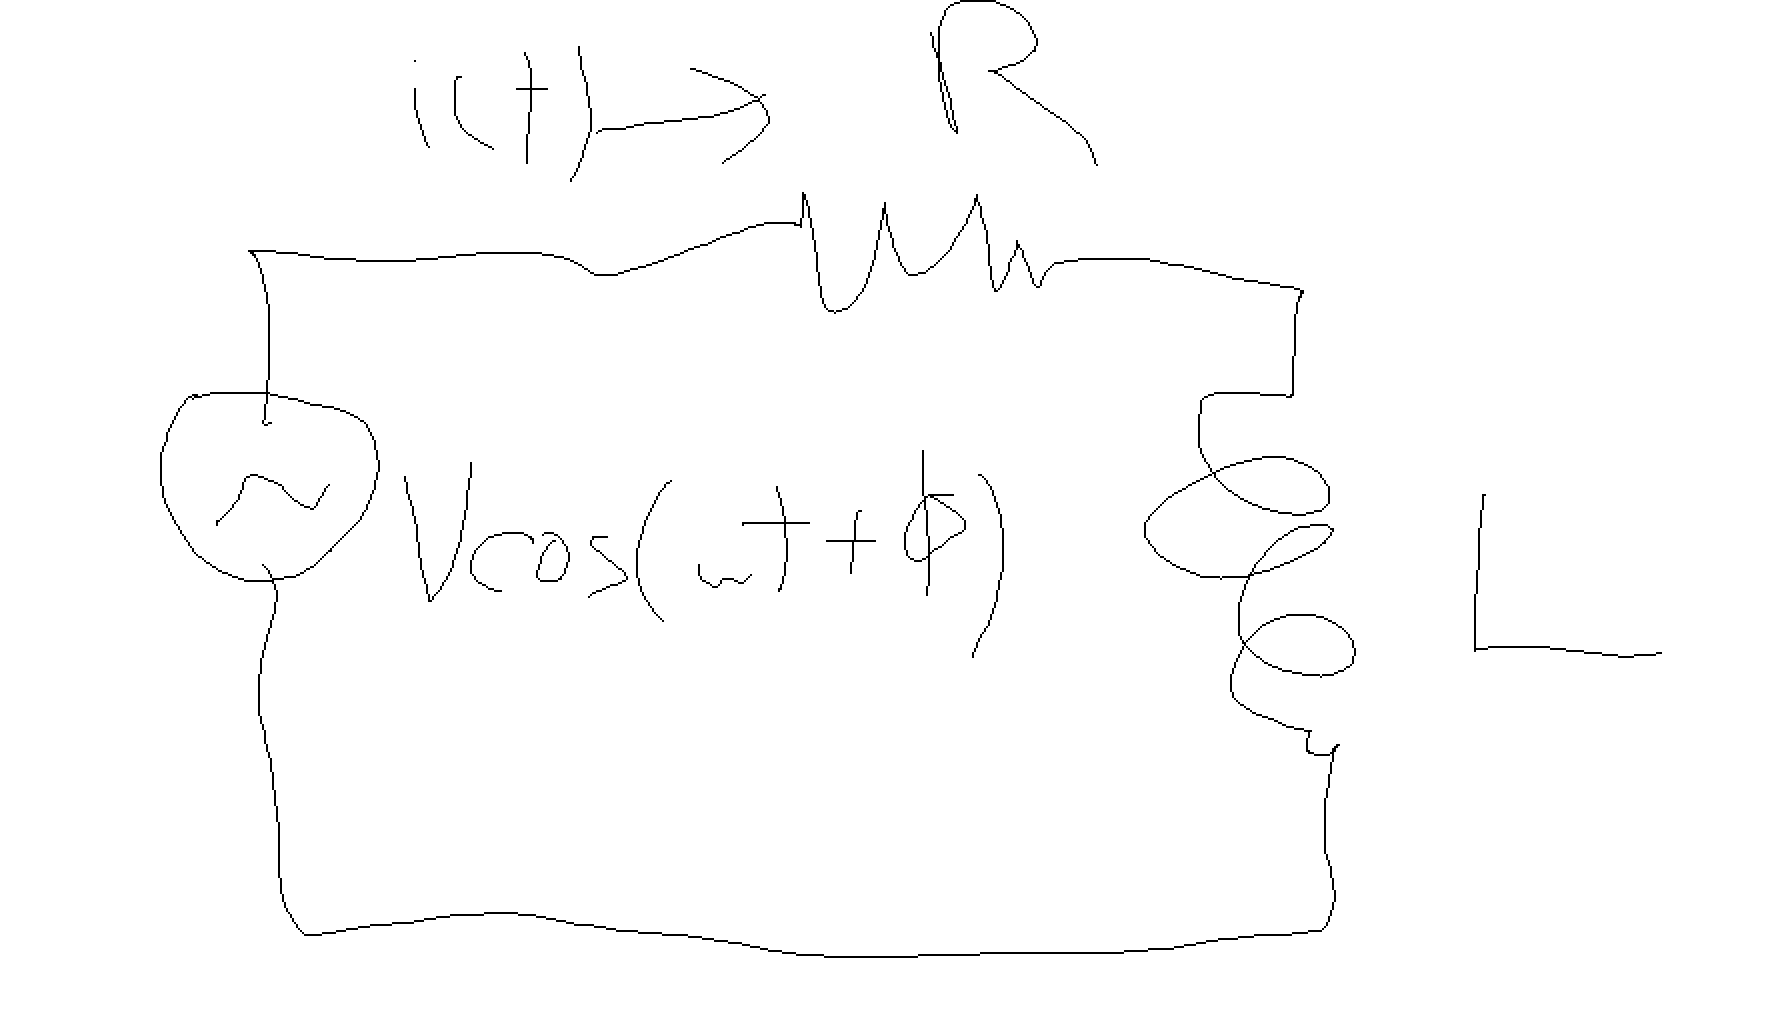 i(t) →
R
Vcos(ωt+ϕ)
L